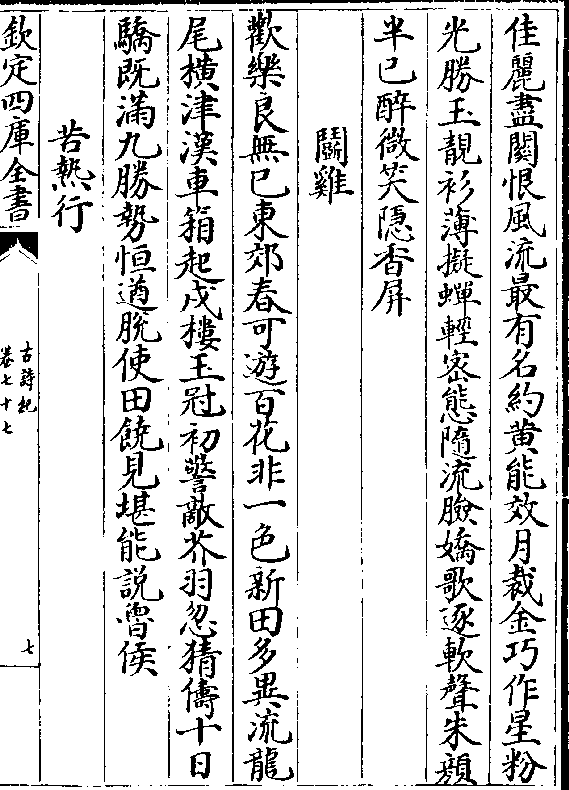 佳麗盡關恨風流最有名約黄能效月裁金巧作星粉
光勝玉靚衫薄擬蟬輕密態隨流臉嬌歌逐軟聲朱顔
半已醉微笑隱香屏
鬭雞
歡樂良無已東郊春可遊百花非一色新田多異流龍
尾横津漢車箱起戍樓玉冠初警敵芥羽忽猜儔十日
驕既滿九勝勢恒遒脫使田饒見堪能說魯侯
苦熱行
欽定四庫全書
古詩紀
卷七十七
七